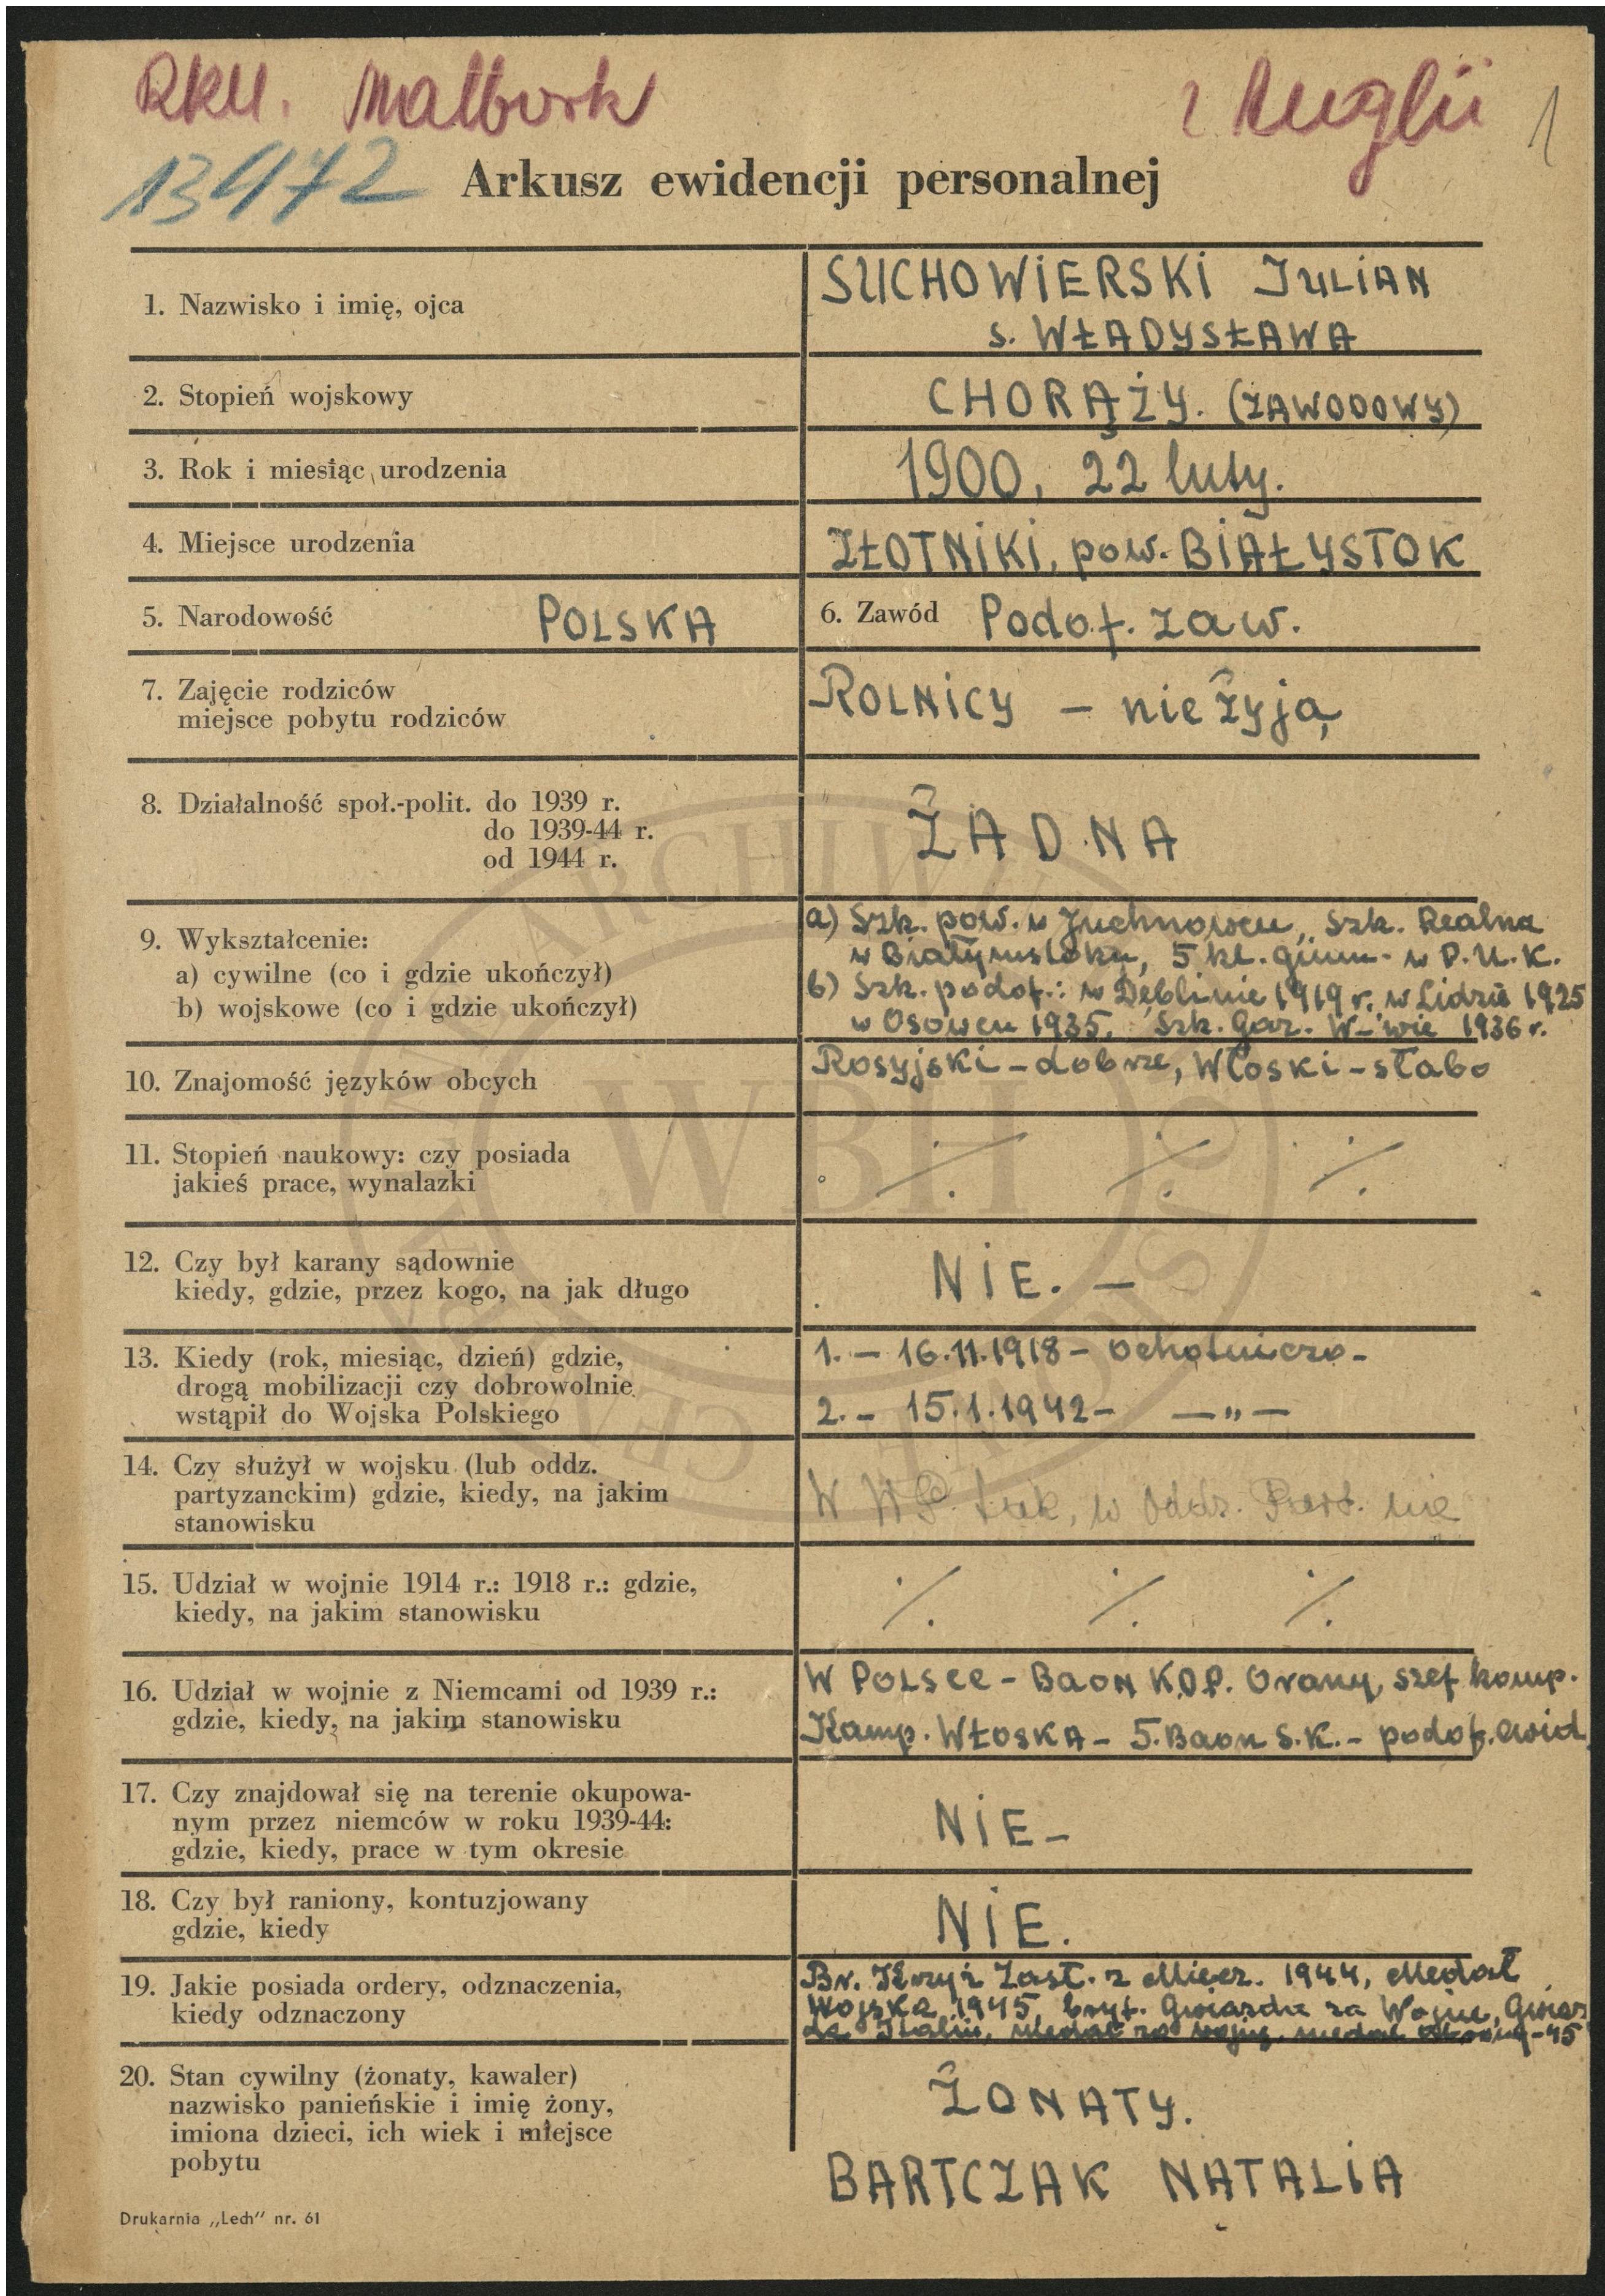 RKU. Malbork
z Anglii
1
13472
Arkusz ewidencji personalnej
1. Nazwisko i imię, ojca
SUCHOWIERSKI JULIAN
s. WŁADYSŁAWA
2. Stopień wojskowy
CHORĄŻY. (ZAWODOWY)
3. Rok i miesiąc urodzenia
1900, 22 luty.
4. Miejsce urodzenia
ZŁOTNIKI, pow. BIAŁYSTOK
5. Narodowość POLSKA
6. Zawód Podof. zaw.
7. Zajęcie rodziców
miejsce pobytu rodziców
ROLNICY – nie żyją
8. Działalność społ.-polit. do 1939 r.
do 1939-44 r.
od 1944 r.
ŻADNA
9. Wykształcenie:
a) cywilne (co i gdzie ukończył)
b) wojskowe (co i gdzie ukończył)
a) Szk. pow. w Juchnowcu, Szk. Realna
w Białymstoku, 5 kl. gimn. w D.U.K.
b) Szk. podof.: w Dęblinie 1919 r. w Lidzie 1925
w Osowcu 1935, Szk. Gaz. W-wie 1936 r.
10. Znajomość języków obcych
Rosyjski – dobrze, Włoski – słabo
11. Stopień naukowy: czy posiada
jakieś prace, wynalazki
·/. ·/. ·/.
12. Czy był karany sądownie
kiedy, gdzie, przez kogo, na jak długo
NIE. –
13. Kiedy (rok, miesiąc, dzień) gdzie,
drogą mobilizacji czy dobrowolnie
wstąpił do Wojska Polskiego
1. – 16.11.1918 – ochotniczo –
2. – 15.1.1942 – – „ –
14. Czy służył w wojsku (lub oddz.
partyzanckim) gdzie, kiedy, na jakim
stanowisku
W WP. tak, w Oddz. Part. nie
15. Udział w wojnie 1914 r.: 1918 r.: gdzie,
kiedy, na jakim stanowisku
·/. ·/. ·/.
16. Udział w wojnie z Niemcami od 1939 r.:
gdzie, kiedy, na jakim stanowisku
W POLSCE – Baon K.O.P. Orany, szef komp.
Kamp. WŁOSKA – 5. Baon S.K. – podof. ewid
17. Czy znajdował się na terenie okupowa-
nym przez niemców w roku 1939-44:
gdzie, kiedy, prace w tym okresie
NIE –
18. Czy był raniony, kontuzjowany
gdzie, kiedy
NIE.
19. Jakie posiada ordery, odznaczenia,
kiedy odznaczony
Br. Krzyż Zasł. z Miecz. 1944, Medal
Wojska 1945, bryt. Gwiazda za Wojnę, Gwiaz
za Italię, medal za wojnę, medal -45
20. Stan cywilny (żonaty, kawaler)
nazwisko panieńskie i imię żony,
imiona dzieci, ich wiek i miejsce
pobytu
ŻONATY.
BARTCZAK NATALIA
Drukarnia „Lech” nr. 61
WBH